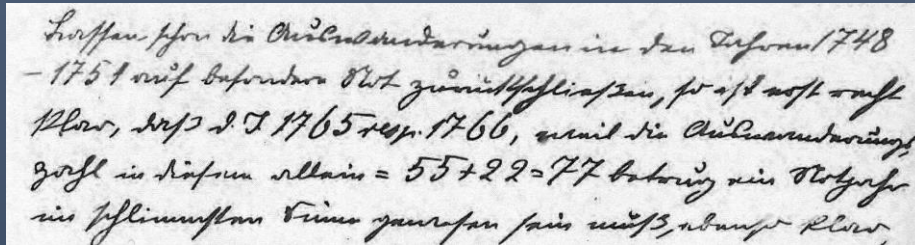 Lassen schon die Auswanderungen in den Jahren 1748
– 1751 auf besondere Not zurückschließen, so ist erst recht
klar, daß d. J. 1765 resp. 1766, weil die Auswanderungs-
zahl in diesem allein = 55+22=77 betrug ein Notjahr
im schlimmsten Sinne gewesen sein muß, ebenso klar,